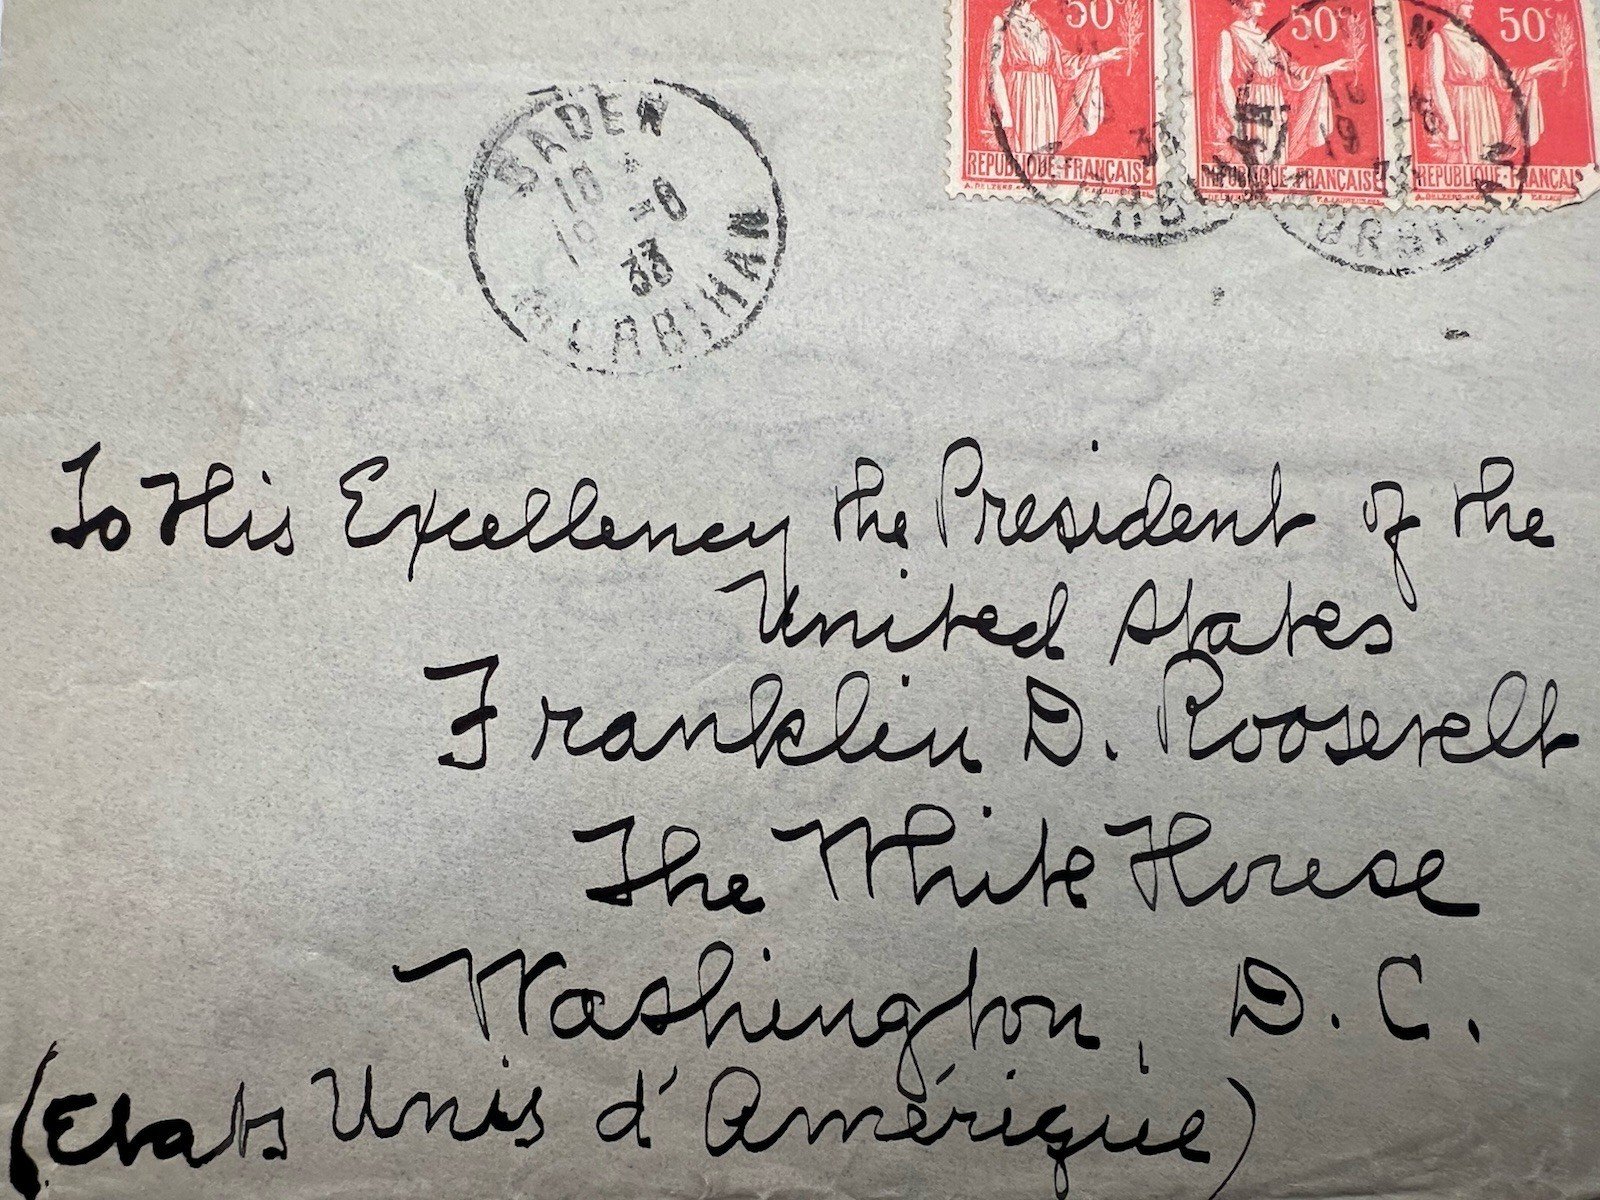 50c 50c 50c
REPUBLIQUE-FRANÇAISE REPUBLIQUE-FRANÇAISE REPUBLIQUE-FRANÇAIS
BADEN
18
19 -8
33
MORBIHAN
To His Excellency the President of the
United States
Franklin D. Roosevelt
The White House
Washington, D.C.
(Etats Unis d'Amérique)